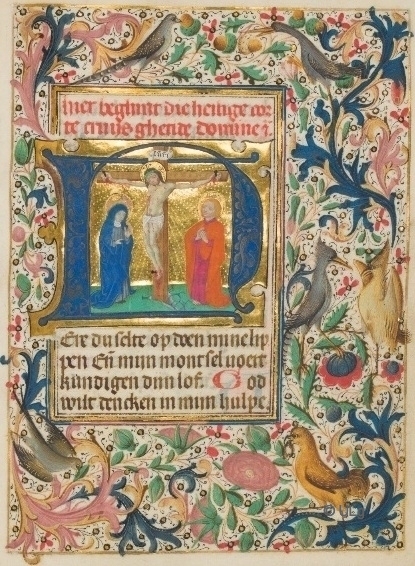 hier beghint die heilige cor
te cruyse ghetide domine i
HEre du selte op doen mine lip
pen En mijn mont sel voert
kundigen dijn lof God
wilt dencken in mijn hulpe